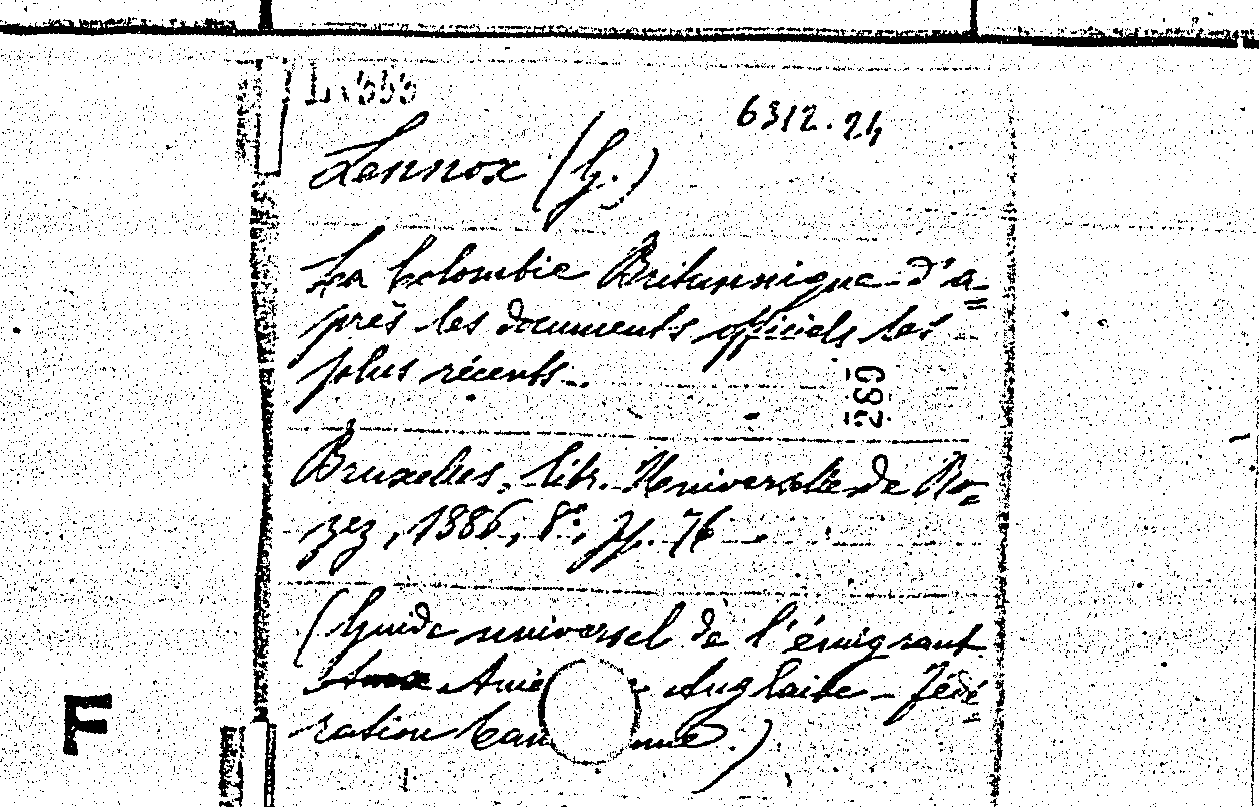 6312.24
Lennox (G.)
La Colombie Britannique d'a=
près les documents officiels les
plus récents.
289
Bruxelles, libr. Universelle de Ro=
zez, 1886, 8°, pp. 76
(Guide universel de l'émigrant
Anglaise - Fédé
ration
F